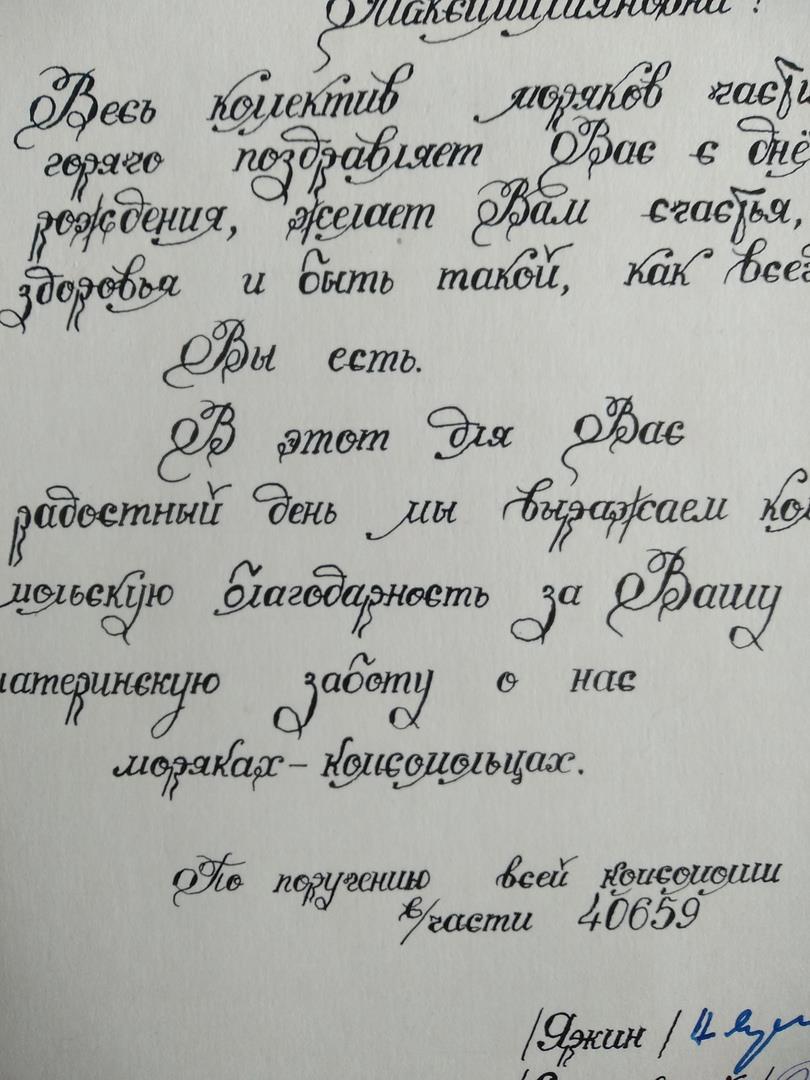 Максимилияновна!
Весь коллектив моряков части
горячо поздравляет Вас с днё
рождения, желает Вам счастья,
здоровья и быть такой, как всег
Вы есть.
В этот для Вас
радостный день мы выражаем ком
мольскую благодарность за Вашу
материнскую заботу о нас
моряках - комсомольцах.
По поручению всей комсомолии
в/части 40659
/Яжин/